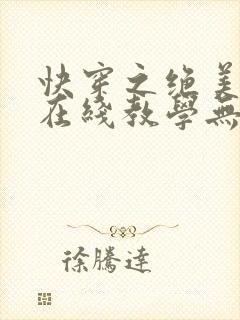 快穿之绝美
在线教學無
徐騰達